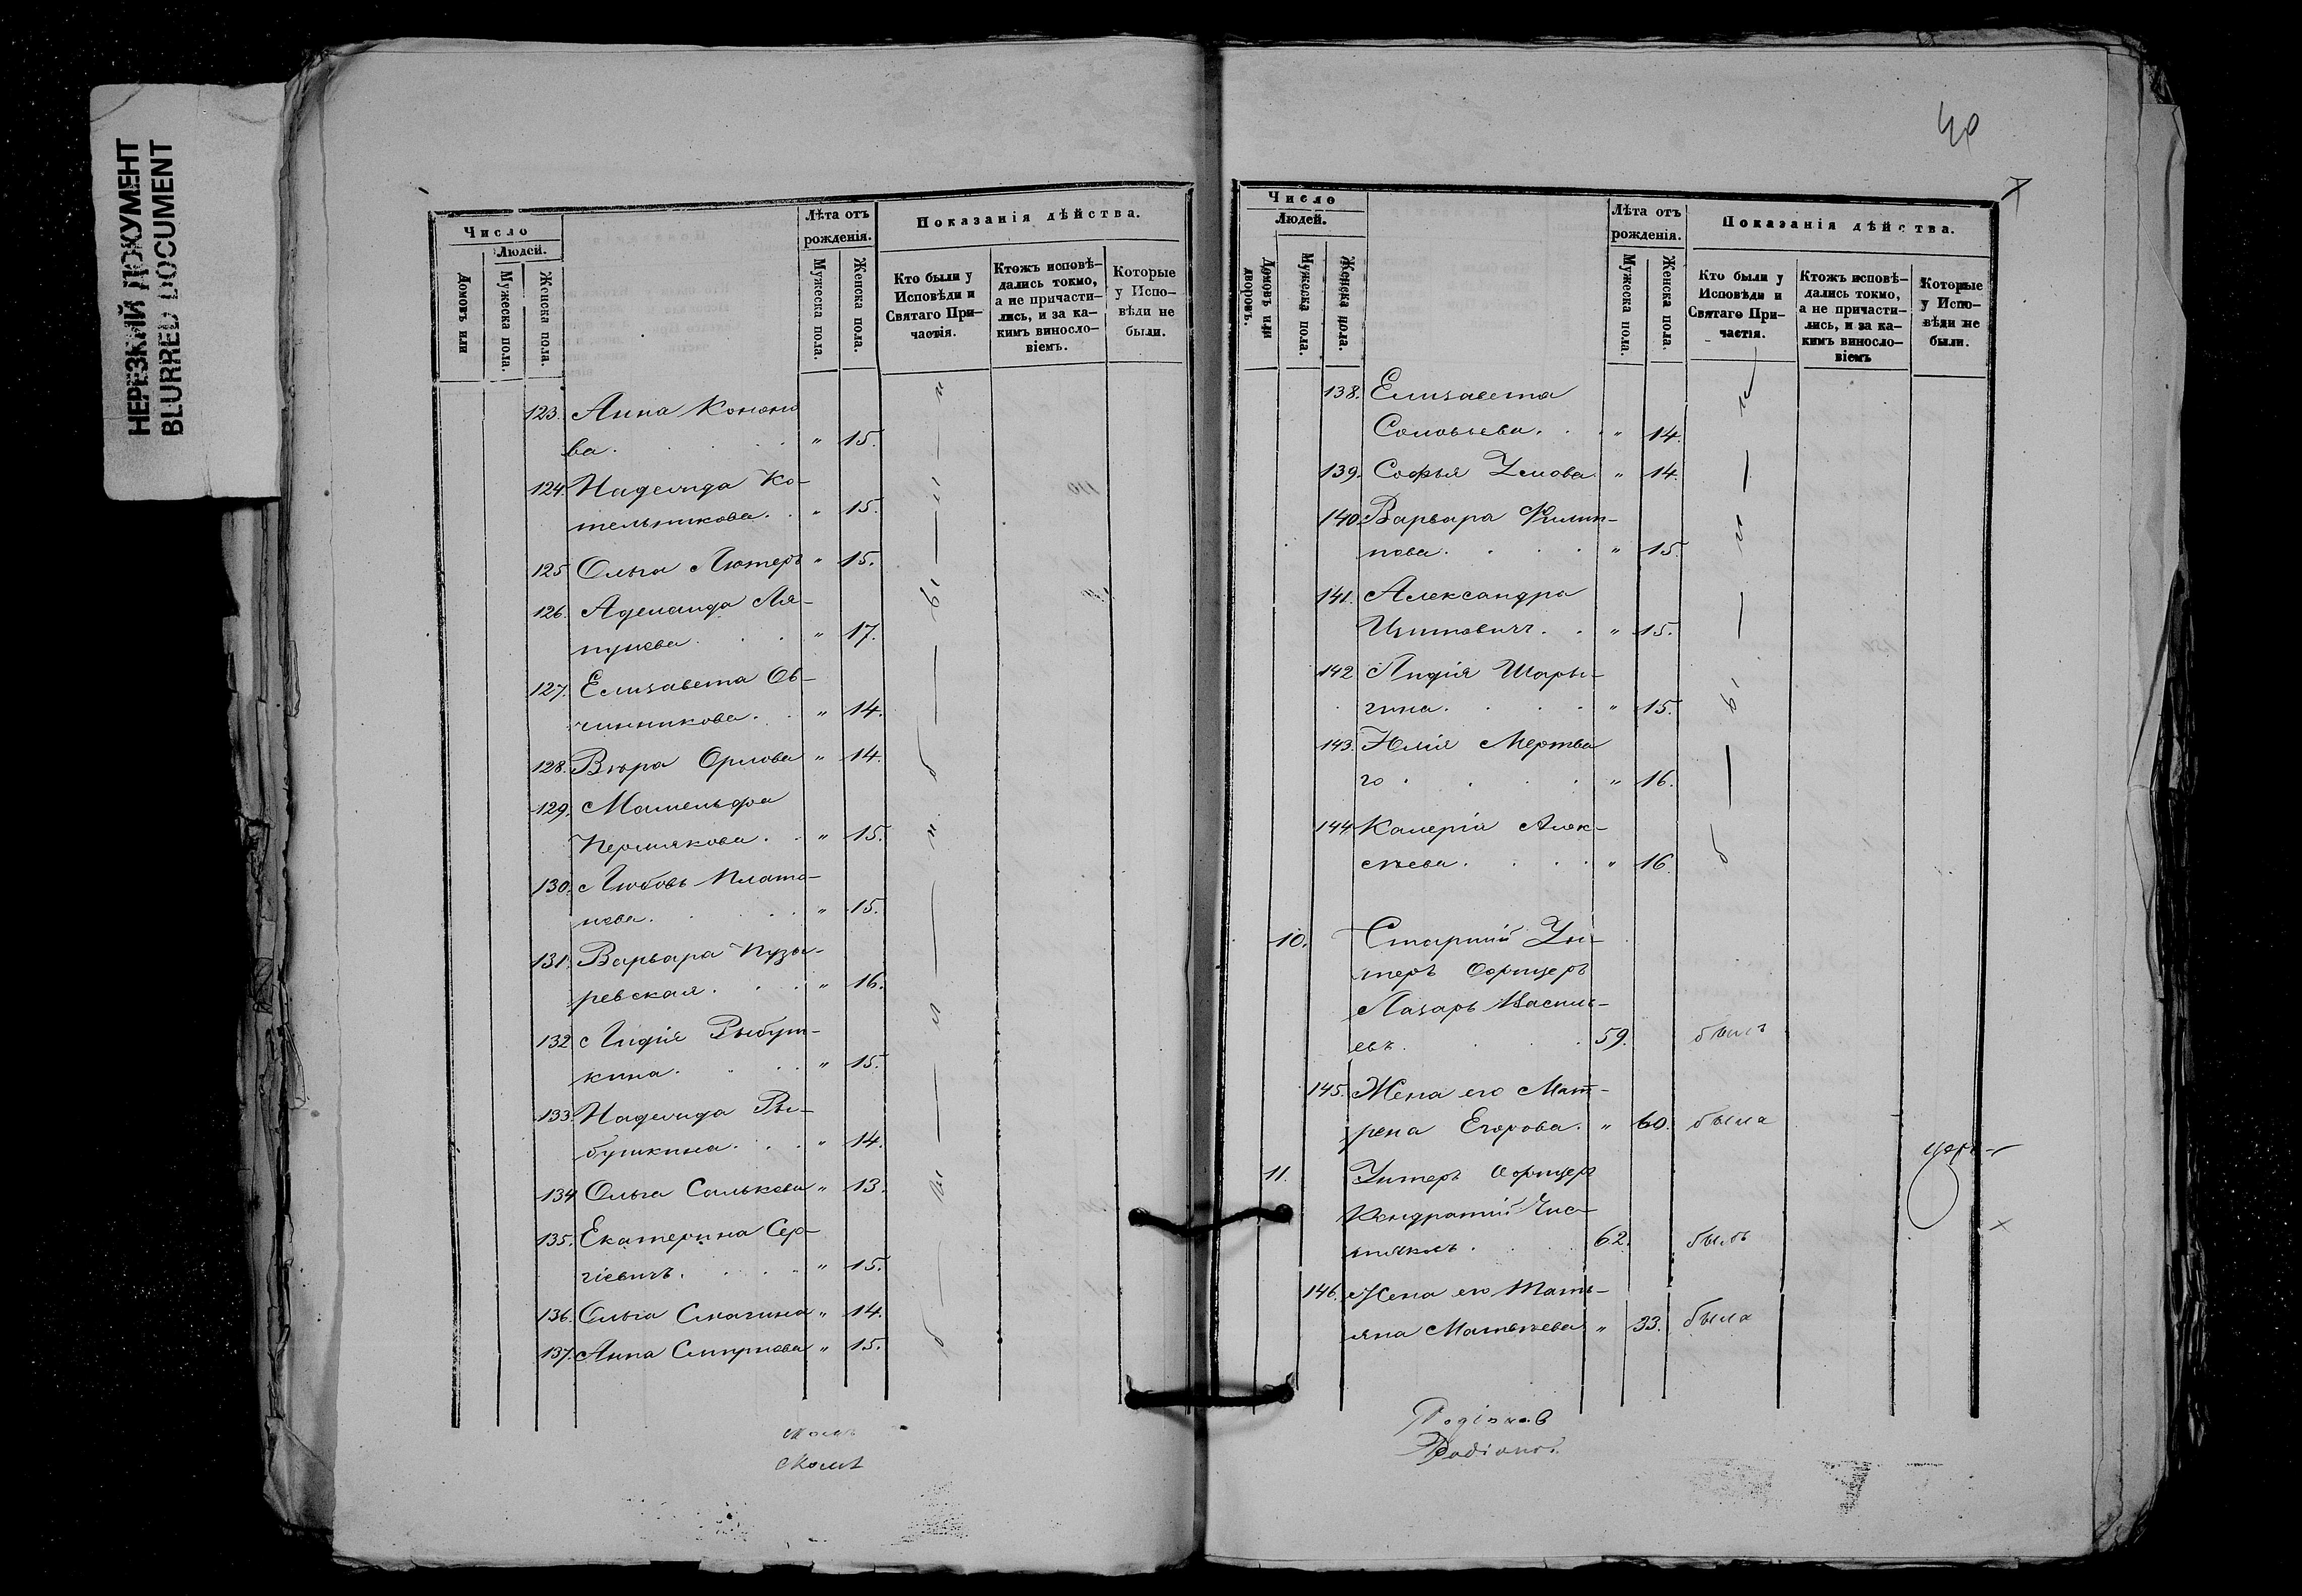 НЕРЕЗКИЙ ДОКУМЕНТ
BLURRED DOCUMENT
Число
Людей.
Домовъ или
Мужеска пола.
Женска пола.
Лѣта отъ
рожденія.
Мужеска пола.
Женска пола.
Показанія дѣйства.
Кто были у
Исповѣди и
Святаго При-
частія.
Ктожъ исповѣ-
дались токмо,
а не причасти-
лись, и за ка-
кимъ винослo-
віемъ.
Которые
у Испо-
вѣди не
были.
123. Анна Кононо
ва. " 15.
124. Надежда Ко-
тельникова. " 15.
125 Ольга Лютеръ " 15.
126. Аделаида Ля-
пунова " 17.
127. Елизавета Ов-
чинникова. " 14.
128. Вѣра Орлова " 14.
129. Мамельфа
Пермякова. " 15.
130. Любовь Плато-
нова. " 15.
131. Варвара Пузы-
ревская. " 16.
132 Лидія Рыбуш-
кина. " 15.
133. Надежда Ры-
бушкина. " 14.
134 Ольга Салькова " 13.
135. Екатерина Сер-
гіевичъ. " 15.
136. Ольга Смагина " 14.
137. Анна Смирнова " 15.
40
Число
Людей.
Домовъ или
дворовъ.
Мужеска пола.
Женска пола.
Лѣта отъ
рожденія.
Мужеска пола.
Женска пола.
Показанія дѣйства.
Кто были у
Исповѣди и
Святаго При-
частія.
Ктожъ исповѣ-
дались токмо,
а не причасти-
лись, и за ка-
кимъ винослo-
віемъ
Которые
у Испо-
вѣди не
были.
138. Елизавета
Соловьева. " 14.
139. Софья Умова " 14.
140. Варвара Филип-
пова. " 15.
141. Александра
" 15.
142 Лидія Шары-
гина. " 15.
143. Юлія Мертва
го " 16.
144 Калерія Алек-
сѣева. " 16
10. Старшій Ун-
теръ Офицеръ
Лазарь Василь-
евъ. 59. былъ
145. Жена его Мат-
рена Егорова. " 60. была
11. Унтеръ Офицеръ
Кондратій Чис-
тяковъ. 62. былъ
146. Жена его Тать-
яна Матвѣева " 33. была
Родіонов
Rodionov.